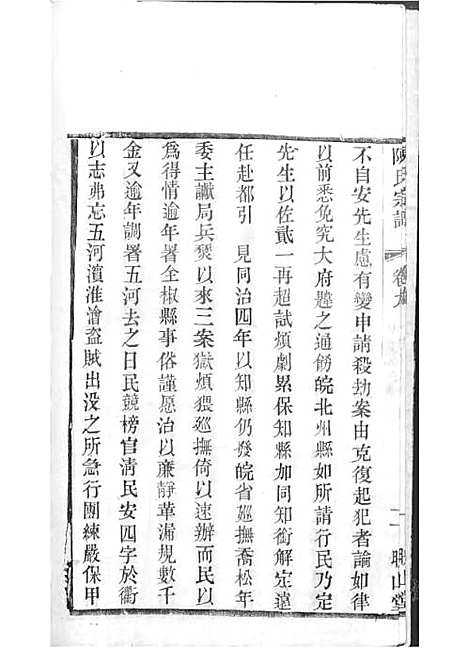 陳氏宗譜 卷九 二 映山堂
不自安先生慮有變申請殺劫案由克復起犯者論如律
以前悉免究大府韙之通飭皖北州縣如所請行民乃定
先生以佐貳一再超試煩劇累保知縣加同知銜解定遠
任赴都引 見同治四年以知縣仍發皖省廵撫喬松年
委主讞局兵燹以來三案獄煩猥廵撫倚以速辦而民以
為得情逾年署全椒縣事俗謹愿治以廉靜革漏規數千
金又逾年調署五河去之日民競榜官清民安四字於衢
以志弗忘五河濱淮澮盜賊出没之所急行團練嚴保甲